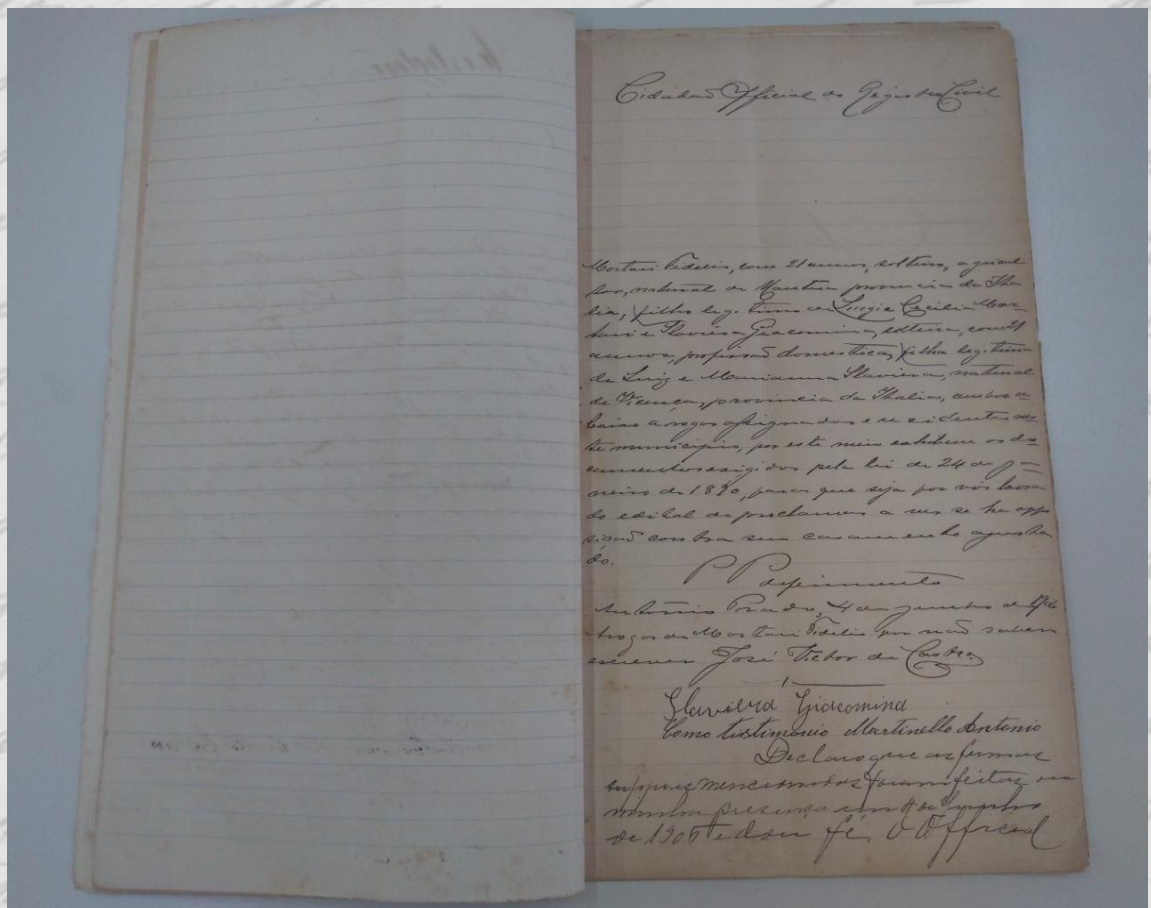 Cidadaõ Official do Registro Civil
Mortari Fidelis, com 21 annos, solteiro, agricul
tor, natural de Mantua provincia da Ita
lia, filho legitimo de Luigi e Cecilia Mor
tari e Slaviera Giacomina, solteira, com 21
annos, profissaõ domestica, filha legitima
de Luiz e Marianna Slaviera, natural
de Vicenza, provincia da Italia, ambos a
baixo a rogo assignados e residentes nes
te municipio, por este meio exhibem os do
cumentos exigidos pela lei de 24 de ja
neiro de 1890, para que seja por vós lavra
do edital de proclamas a ver se ha oppo
sicaõ contra seu casamento ajusta
do.
P P deferimento
Antonio Prado, 4 de Junho de
Arogo de Mortari Fidelis por naõ saber
escrever José Victor de Castro
Slaviera Giacomina
Como tistimonio Martinello Antonio
Declaro que as firmas
suppras mencionadas foram feitas na
minha presença em 4 de Junho
de 1905 e dou fé, O Official